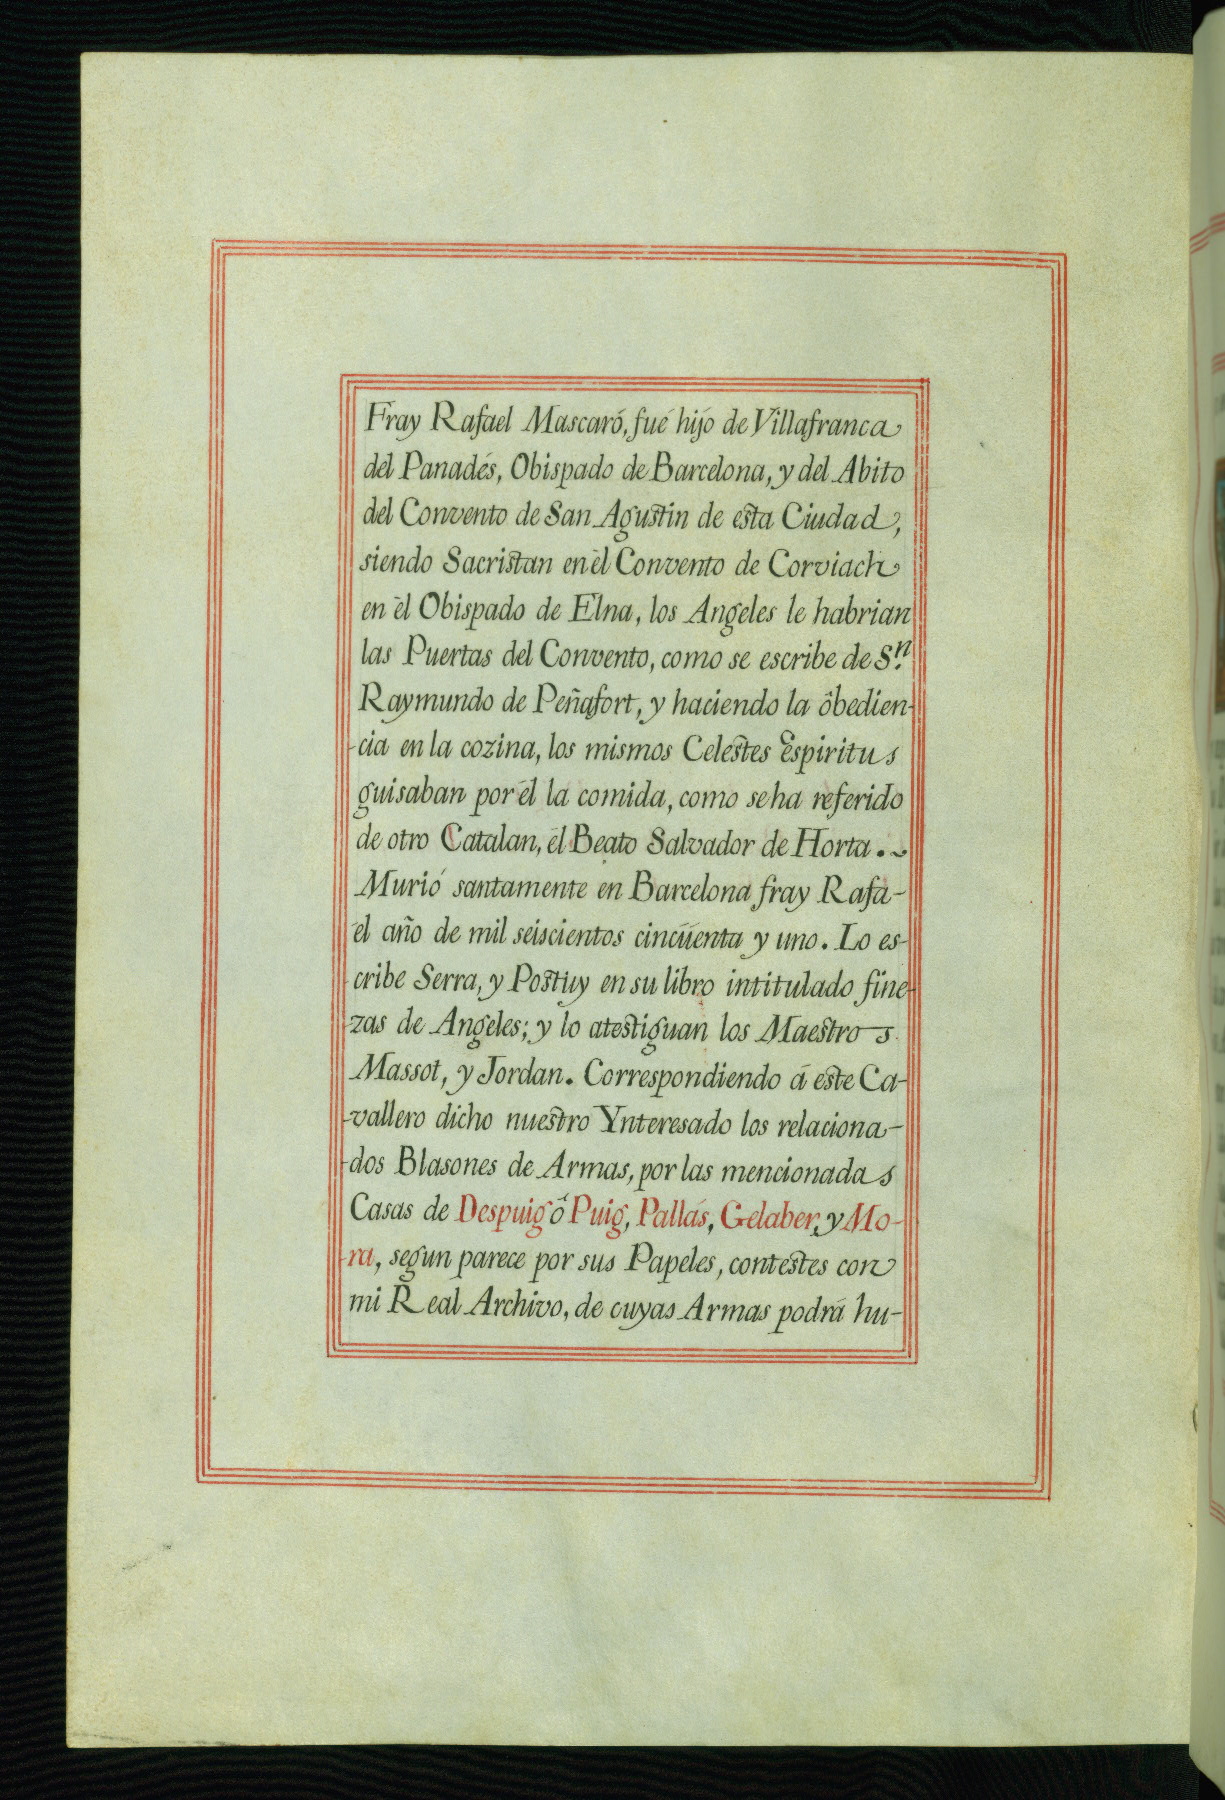 Fray Rafael Mascaró, fué hijo de Villafranca
del Panadés, Obispado de Barcelona, y del Abito
del Convento de San Agustin de esta Ciudad,
siendo Sacristan en él Convento de Corviach
en él Obispado de Elna, los Angeles le habrian
las Puertas del Convento, como se escribe de Sⁿ.
Raymundo de Peñafort, y haciendo la ôbedien-
-cia en la cozina, los mismos Celestes Espiritus
guisaban por él la comida, como se ha referido
de otro Catalan, él Beato Salvador de Horta.
Murió santamente en Barcelona fray Rafa-
él año de mil seiscientos cincüenta y uno. Lo es-
cribe Serra, y Postiuy en su libro intitulado fine-
-zas de Angeles; y lo atestiguan los Maestros
Massot, y Jordan. Correspondiendo á este Ca-
-vallero dicho nuestro Ynteresado los relaciona-
-dos Blasones de Armas, por las mencionadas
Casas de Despuig ô Puig, Pallás, Gelaber, y Mo-
-ra, segun parece por sus Papeles, contestes con
mi Real Archivo, de cuyas Armas podrá hu-